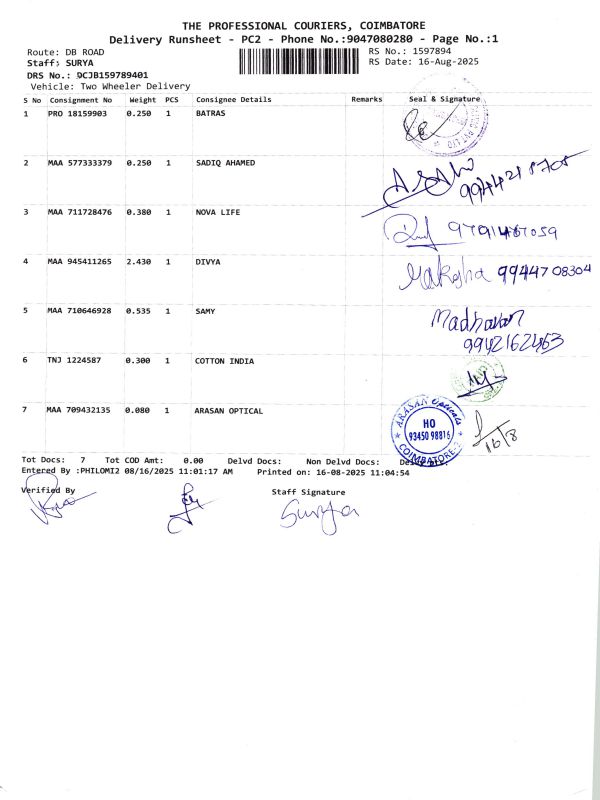 THE PROFESSIONAL COURIERS, COIMBATORE
Delivery Runsheet - PC2 - Phone No.:9047080280 - Page No.:1
Route: DB ROAD RS No.: 1597894
Staff: SURYA RS Date: 16-Aug-2025
DRS No.: 9CJB159789401
Vehicle: Two Wheeler Delivery
S No Consignment No Weight PCS Consignee Details Remarks Seal & Signature
1 PRO 18159903 0.250 1 BATRAS
2 MAA 577333379 0.250 1 SADIQ AHAMED
3 MAA 711728476 0.380 1 NOVA LIFE
4 MAA 945411265 2.430 1 DIVYA 9944708304
5 MAA 710646928 0.535 1 SAMY Madhavan
9942162463
6 TNJ 1224587 0.300 1 COTTON INDIA
7 MAA 709432135 0.080 1 ARASAN OPTICAL
ARASAN Opticals
HO
93450 98816
COIMBATORE
16/8
Tot Docs: 7 Tot COD Amt: 0.00 Delvd Docs: Non Delvd Docs:
Entered By :PHILOMI2 08/16/2025 11:01:17 AM Printed on: 16-08-2025 11:04:54
Verified By Staff Signature
Surya